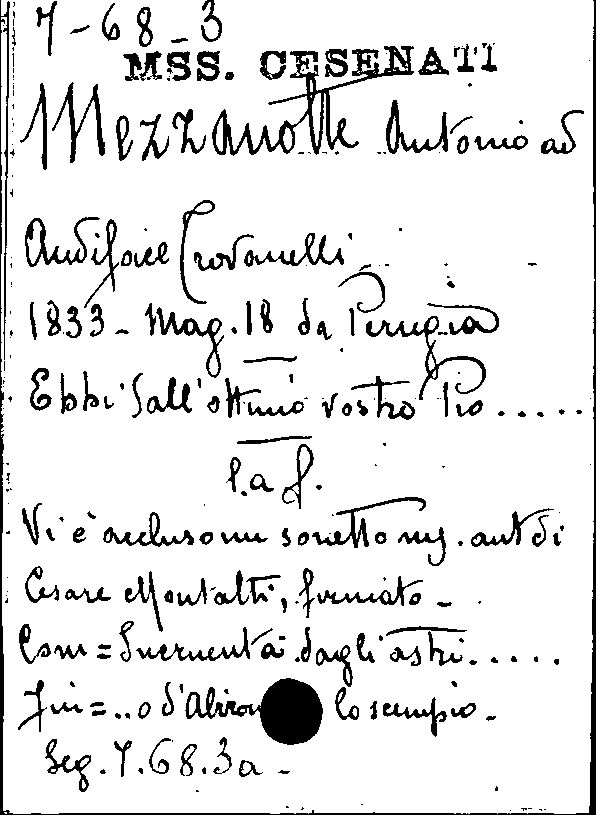 7-68-3
MSS. CESENATI
Mezzanotte Antonio ad
Audiface Trovanelli
1833 - Mag. 18 da Perugia
Ebbi dall'ottimo vostro Pio .....
l.a f.
Vi è accluso un sonetto ms. aut di
Cesare Montalti, firmato -
Com = Incruenta dagli astri .....
Fin = .. o d'Abiron lo scempio -
Seg. 7.68.3a -